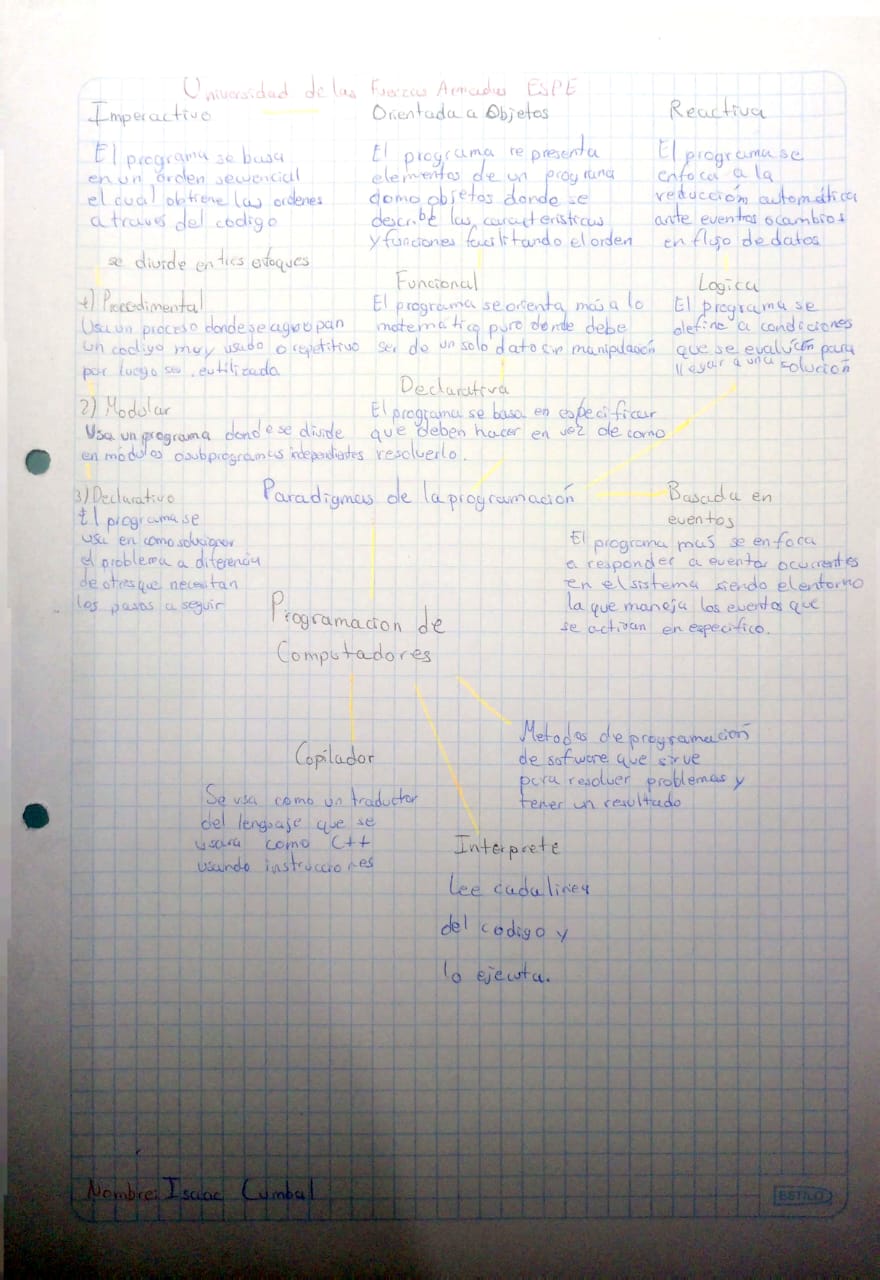 Universidad de las Fuerzas Armadas ESPE
Imperactivo
El programa se basa
en un orden sewencial
el cual obtiene las ordenes
a traves del codigo
se divide en tres enfoques
1) Procedimental
Usa un proceso donde se agrupan
un codigo muy usado o repetitivo
por luego ser reutilizada
2) Modular
Usa un programa donde se divide
en módulos o subprogramas independientes
3) Declarativo
El programa se
usa en como solucionar
el problema a diferencia
de otros que necesitan
los pasos a seguir
Orientada a Objetos
El programa representa
elementos de un programa
como objetos donde se
describe las caracteristicas
y funciones facilitando el orden
Funcional
El programa se orienta más a lo
matemático puro donde debe
ser de un solo dato sin manipulación
Declarativa
El programa se basa en especificar
que deben hacer en vez de como
resolverlo.
Reactiva
El programa se
enfoca a la
reducción automática
ante eventos o cambios
en flujo de datos
Logica
El programa se
define a condiciones
que se evalucan para
llegar a una solución
Paradigmas de la programación
Basada en
eventos
El programa mas se enfoca
a responder a eventos ocurrentes
en el sistema siendo el entorno
la que maneja los eventos que
se activan en especifico.
Programacion de
Computadores
Copilador
Se usa como un traductor
del lenguaje que se
usara como C++
usando instrucciones
Metodos de programación
de sofware que sirve
para resolver problemas y
tener un resultado
Interprete
Lee cada linea
del codigo y
lo ejecuta.
Nombre: Isaac Cumbal
ESTILO